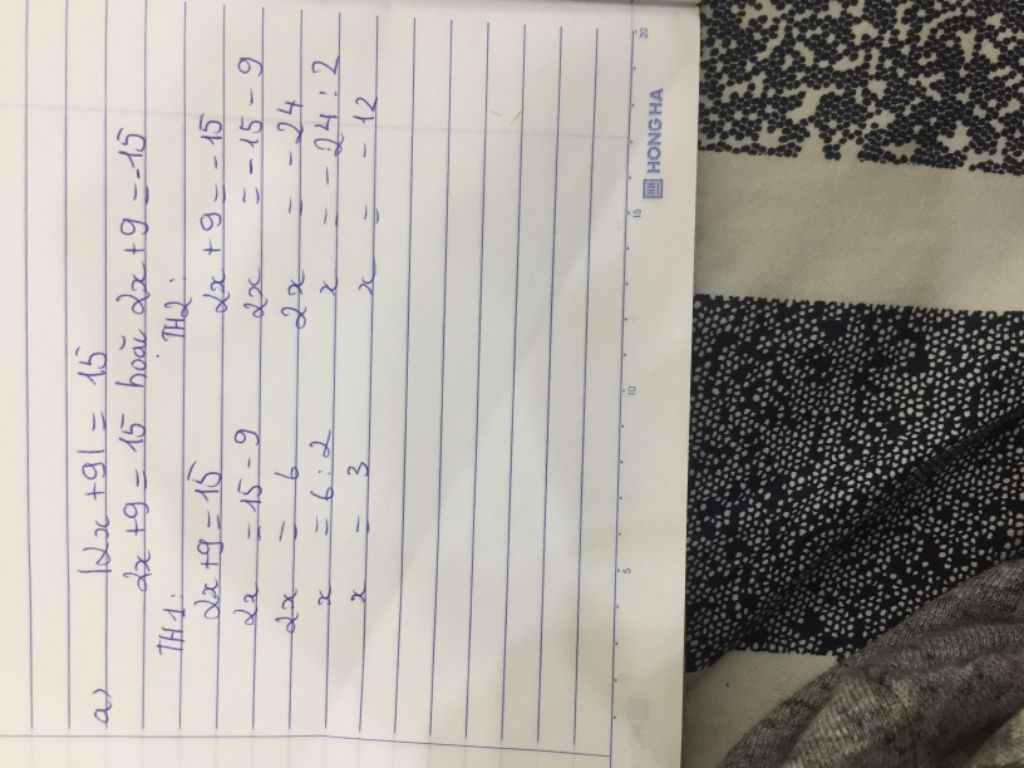 a) |2x + 9| = 15
2x + 9 = 15 hoặc 2x + 9 = -15
TH1: TH2:
2x + 9 = 15 2x + 9 = -15
2x = 15 - 9 2x = -15 - 9
2x = 6 2x = -24
x = 6 : 2 x = -24 : 2
x = 3 x = -12
5 10 15 20
HONG HA